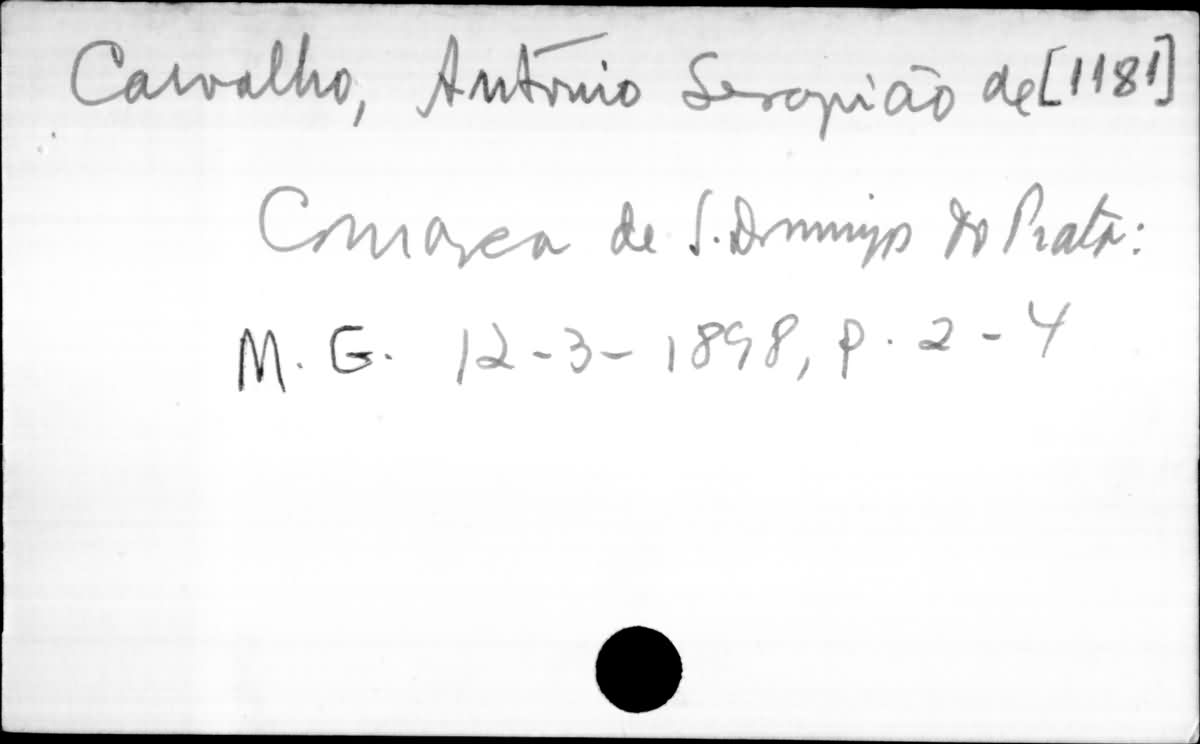 Carvalho, Antônio Serapião de [1181]
Comarca de S. Domingos do Prata:
M. G. 12-3-1898, p. 2-4